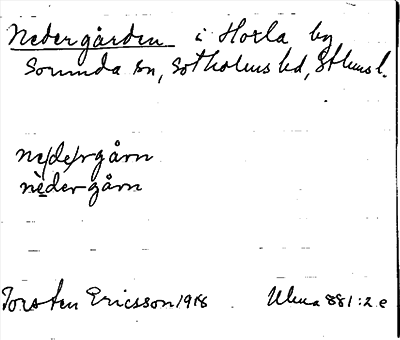 Nedergården i Horla by
Sorunda sn, Sotholms hd, Sthms l.
ne/de/rgårn
nèdergårn
Torsten Ericsson 1918 Ulma 881:2 e